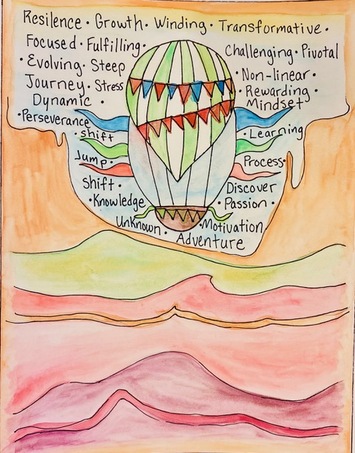 Resilence · Growth · Winding · Transformative ·
Focused · Fulfilling ·
· Evolving · Steep
Journey · Stress
Dynamic ·
· Perseverance
shift
Jump ·
Shift ·
· Knowledge
Unknown ·
Challenging · Pivotal
· Non-linear ·
· Rewarding
Mindset
· Learning
Process ·
Discover
· Passion ·
· Motivation
Adventure